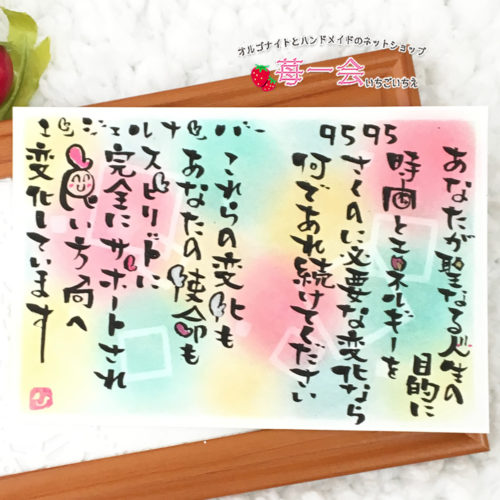 オルゴナイトとハンドメイドのネットショップ
苺一会 いちごいちえ
エンジェルナンバー 9595
あなたが聖なる人生の
目的に
時間とエネルギーを
さくのに必要な変化なら
何であれ続けてください
これらの変化も
あなたの使命も
スピリットに
完全にサポートされ
良い方向へ
変化しています